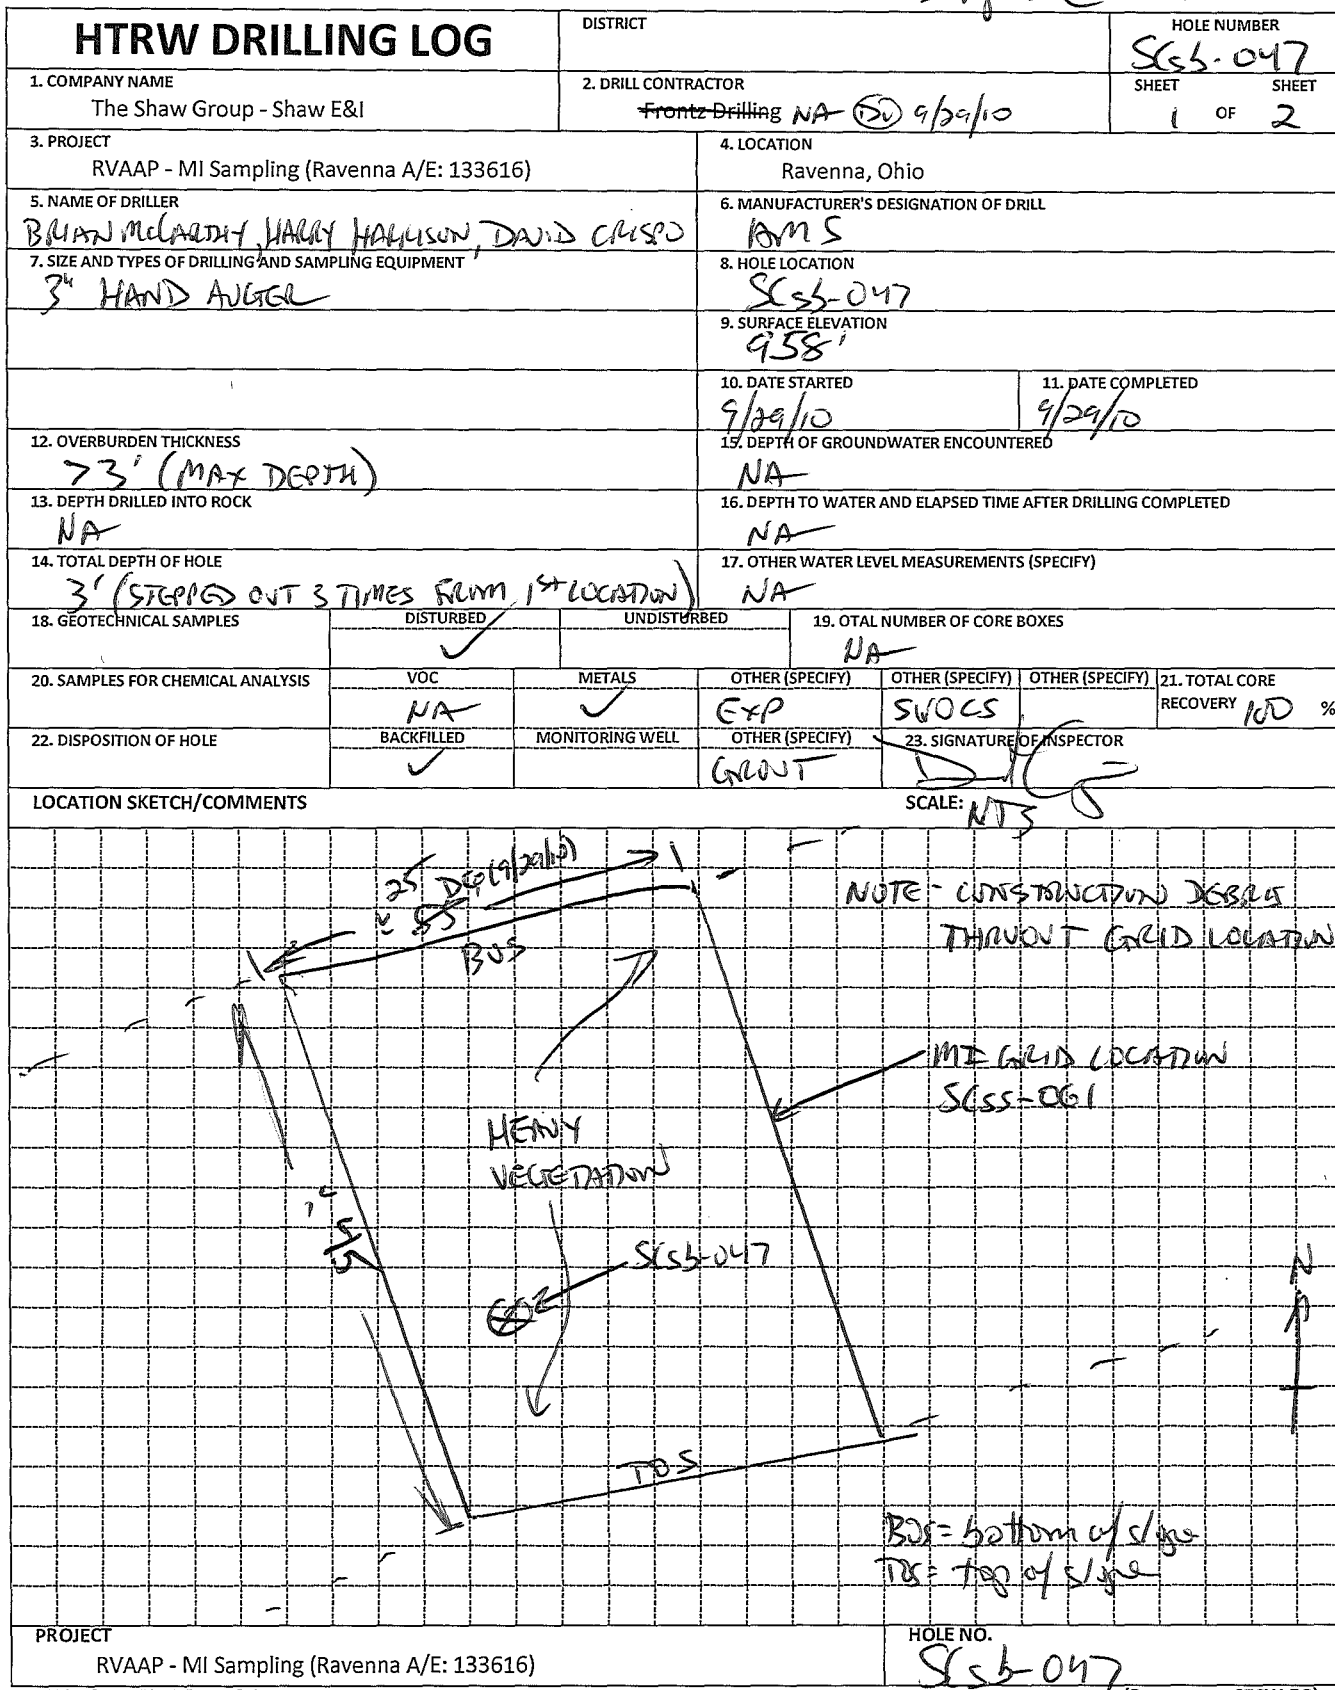 HTRW DRILLING LOG
DISTRICT
HOLE NUMBER
SCsb-047
1. COMPANY NAME
The Shaw Group - Shaw E&I
2. DRILL CONTRACTOR
Frontz Drilling NA 9/29/10
SHEET SHEET
1 OF 2
3. PROJECT
RVAAP - MI Sampling (Ravenna A/E: 133616)
4. LOCATION
Ravenna, Ohio
5. NAME OF DRILLER
BRIAN McCARTHY, HARRY HARRISON, DAVID CRISPO
6. MANUFACTURER'S DESIGNATION OF DRILL
AMS
7. SIZE AND TYPES OF DRILLING AND SAMPLING EQUIPMENT
3" HAND AUGER
8. HOLE LOCATION
SCsb-047
9. SURFACE ELEVATION
958'
10. DATE STARTED
9/29/10
11. DATE COMPLETED
9/29/10
12. OVERBURDEN THICKNESS
>3' (MAX DEPTH)
15. DEPTH OF GROUNDWATER ENCOUNTERED
NA
13. DEPTH DRILLED INTO ROCK
NA
16. DEPTH TO WATER AND ELAPSED TIME AFTER DRILLING COMPLETED
NA
14. TOTAL DEPTH OF HOLE
3' (STEPPED OUT 3 TIMES FROM 1ST LOCATION)
17. OTHER WATER LEVEL MEASUREMENTS (SPECIFY)
NA
18. GEOTECHNICAL SAMPLES
DISTURBED
✓
UNDISTURBED
19. OTAL NUMBER OF CORE BOXES
NA
20. SAMPLES FOR CHEMICAL ANALYSIS
VOC
NA
METALS
✓
OTHER (SPECIFY)
EXP
OTHER (SPECIFY)
SVOCS
OTHER (SPECIFY)
21. TOTAL CORE
RECOVERY 100 %
22. DISPOSITION OF HOLE
BACKFILLED
✓
MONITORING WELL
OTHER (SPECIFY)
GROUT
23. SIGNATURE OF INSPECTOR
LOCATION SKETCH/COMMENTS
SCALE: NTS
25 (9/29/10)
BOS
NOTE - CONSTRUCTION DEBRIS
THRUOUT GRID LOCATION
MI GRID LOCATION
SCss-061
HEAVY
VEGETATION
SCsb-047
N
TOS
BOS = bottom of slope
TOS = top of slope
PROJECT
RVAAP - MI Sampling (Ravenna A/E: 133616)
HOLE NO.
SCsb-047